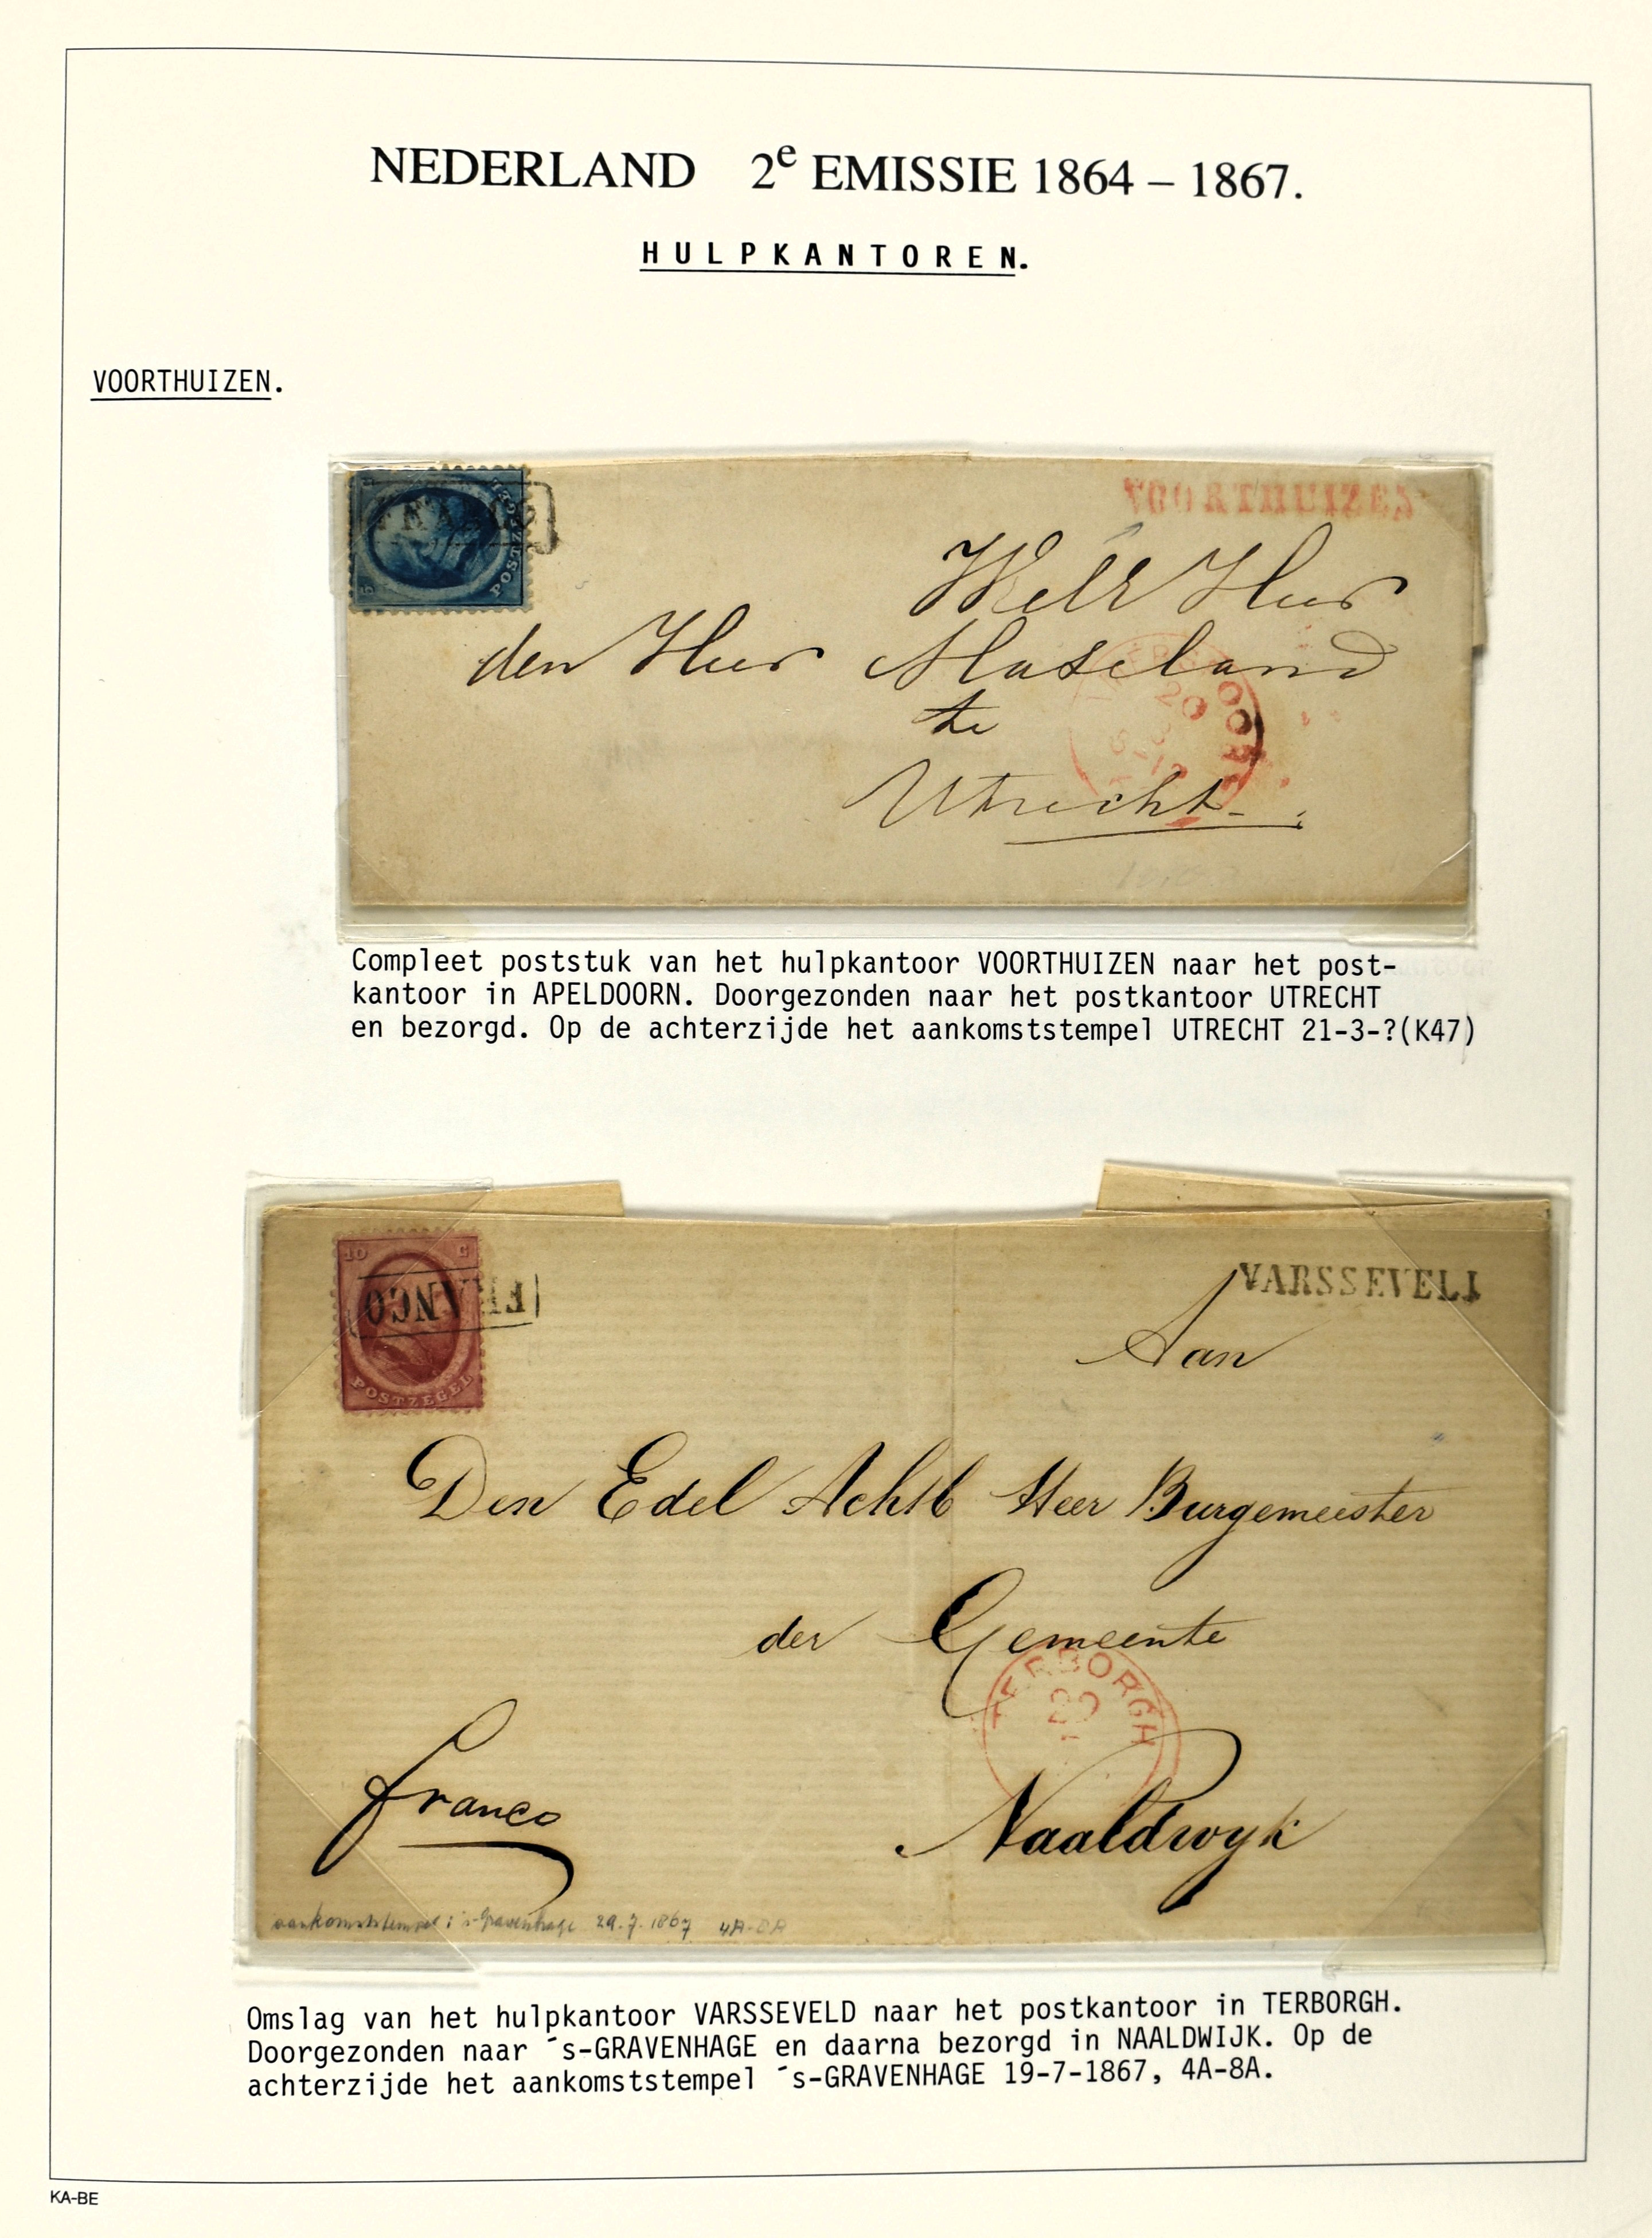 NEDERLAND 2e EMISSIE 1864 – 1867.
HULPKANTOREN.
VOORTHUIZEN.
FRANCO
5 C
POSTZEGEL
VOORTHUIZEN
Heer
den Heer
te
Utrecht
20
Compleet poststuk van het hulpkantoor VOORTHUIZEN naar het post-
kantoor in APELDOORN. Doorgezonden naar het postkantoor UTRECHT
en bezorgd. Op de achterzijde het aankomststempel UTRECHT 21-3-?(K47)
10 C
FRANCO
POSTZEGEL
VARSSEVELD
Aan
Den Edel Achtb Heer Burgemeester
der Gemeente
TERBORGH
Naaldwyk
franco
aankomststempel: 's-Gravenhage 29.7.1867 4A-8A
Omslag van het hulpkantoor VARSSEVELD naar het postkantoor in TERBORGH.
Doorgezonden naar ´s-GRAVENHAGE en daarna bezorgd in NAALDWIJK. Op de
achterzijde het aankomststempel ´s-GRAVENHAGE 19-7-1867, 4A-8A.
KA-BE